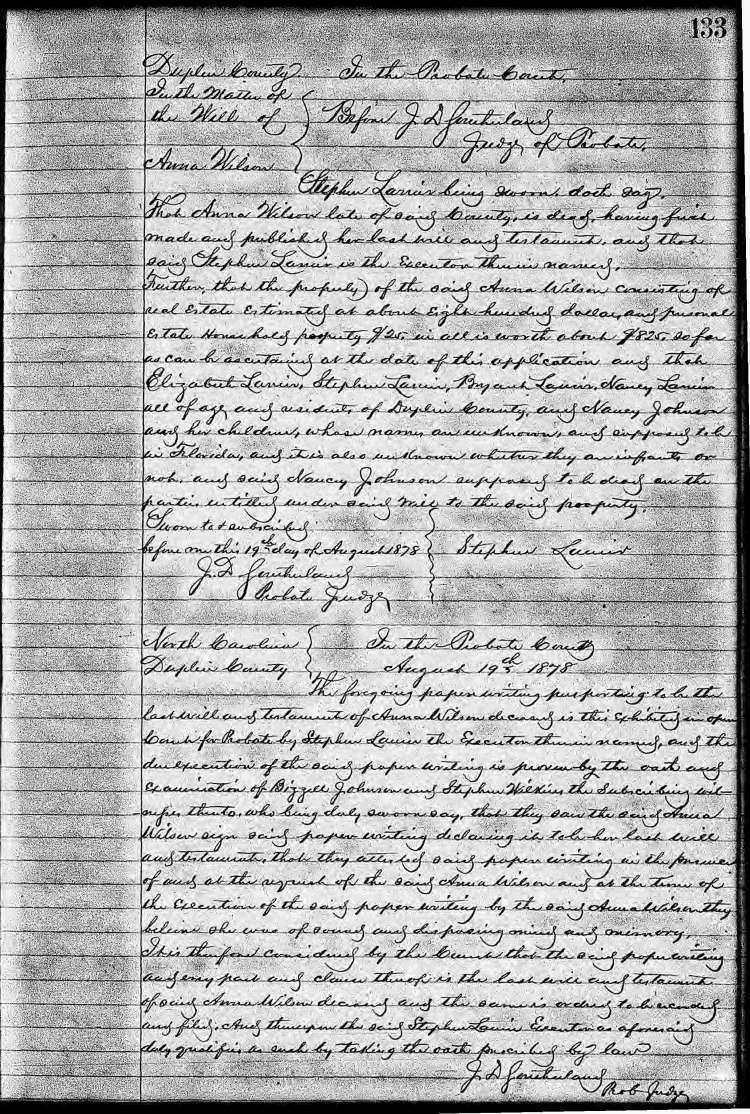 133
Duplin County. In the Probate Court.
In the Matter of
the Will of Before J. D. Southerland
Judge of Probate.
Anna Wilson
Stephen Lanier being sworn doth say.
That Anna Wilson late of said County, is dead, having first
made and published her last will and testament, and that
said Stephen Lanier is the Executor therein named.
Further, that the property of the said Anna Wilson consisting of
real Estate Estimated at about Eight hundred dollars, and personal
Estate Household property $25. in all is worth about $825. so far
as can be ascertained at the date of this application and that
Elizabeth Lanier, Stephen Lanier, Bryant Lanier, Nancy Lanier
all of age and residents of Duplin County, and Nancy Johnson
and her children, whose names are unknown, and supposed to be
in Florida, and it is also unknown whether they are infants or
not, and said Nancy Johnson supposed to be dead are the
parties entitled under said will to the said property.
Sworn to & subscribed
before me this 19th day of August 1878 Stephen Lanier
J. D. Southerland
Probate Judge
North Carolina In the Probate Court
Duplin County August 19th 1878
The foregoing paper writing purporting to be the
last will and testament of Anna Wilson deceased is this Exhibited in open
Court for Probate by Stephen Lanier the Executor therein named, and the
due execution of the said paper writing is proven by the oath and
examination of Bizzell Johnson and Stephen Wilkins the Subscribing wit-
nesses thereto, who being duly sworn say, that they saw the said Anna
Wilson sign said paper writing declaring it to be her last will
and testament, that they attested said paper writing in the presence
of and at the request of the said Anna Wilson and at the time of
the Execution of the said paper writing by the said Anna Wilson they
believe she was of sound and disposing mind and memory.
It is therefore considered by the Court that the said paper writing
and every part and clause thereof is the last will and testament
of said Anna Wilson deceased and the same is ordered to be recorded
and filed. And thereupon the said Stephen Lanier Executor as aforesaid
duly qualifies as such by taking the oath prescribed by law
J. D. Southerland
Prob Judge